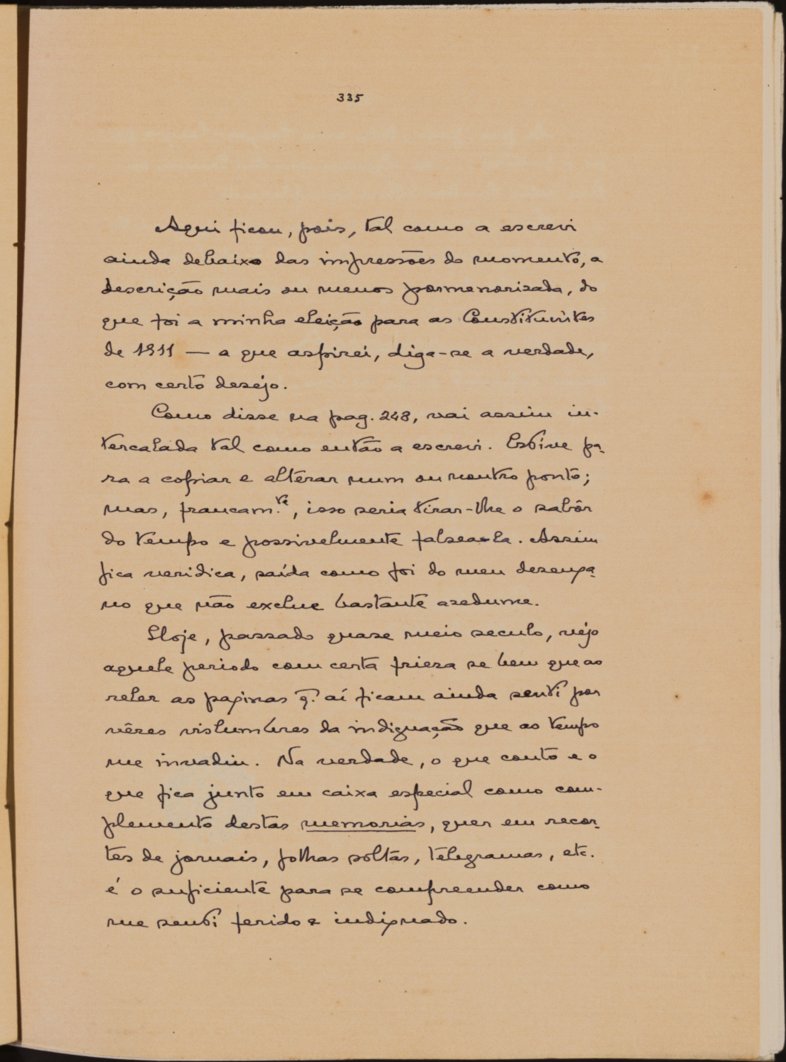 335
Aqui ficou, pois, tal como a escrevi
ainda debaixo das impressões do momento, a
descrição mais ou menos pormenorizada, do
que foi a minha eleição para as Constituintes
de 1911 — a que aspirei, diga-se a verdade,
com certo desejo.
Como disse na pag. 248, vai assim in-
tercalada tal como então a escrevi. Estive pa-
ra a copiar e alterar num ou noutro ponto;
mas, francam.te, isso seria tirar-lhe o sabôr
do tempo e possivelmente falsea-la. Assim
fica veridica, saída como foi do meu desenga-
no que não exclue bastante azedume.
Hoje, passado quase meio seculo, vejo
aquele periodo com certa frieza se bem que ao
reler as paginas q. aí ficam ainda senti por
vêzes vislumbres da indignação que ao tempo
me invadiu. Na verdade, o que conto e o
que fica junto em caixa especial como com-
plemento destas memorias, quer em recor-
tes de jornais, folhas soltas, telegramas, etc.
é o suficiente para se compreender como
me senti ferido e indignado.